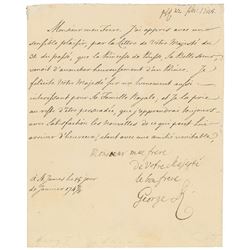 Monsieur mon Frere. J'ai appris avec un
sensible plaisir, par la Lettre de Votre Majesté du
de du passé, que la Princesse de Prusse, Sa Belle Soeur,
venoit d'accoucher heureusement d'un Prince. Je
felicite Votre Majesté sur un evenement aussi
interessant pour Sa Famille Royale, et je la prie
d'être persuadée, que j'apprendrai toujours
avec satisfaction les nouvelles de ce qui peut lui
arriver d'heureux, étant avec une amitié veritable
Monsieur mon frere
de Votre Majesté
le bon frere
George R
A St James le jour
de Janvier 174